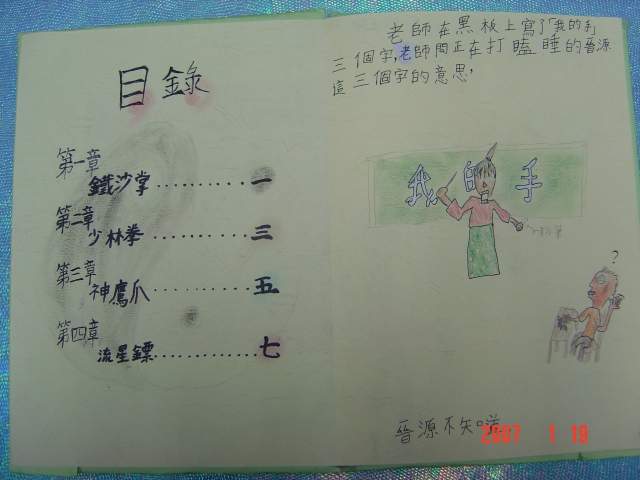 目錄
第一章
鐵沙掌..........一
第二章
少林拳..........三
第三章
神鷹爪..........五
第四章
流星鏢............七
老師在黑板上寫了「我的手」
三個字,老師問正在打瞌睡的晉源
這三個字的意思,
我的手
?
晉源不知
2007 1 19